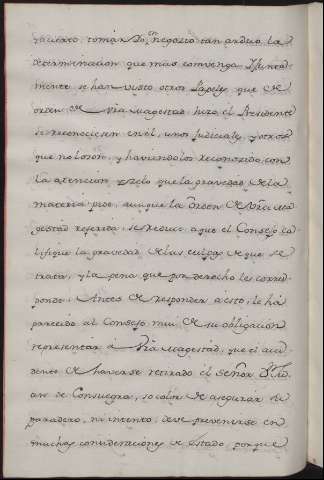 acierto tomar Dn negozio tan arduo la
determinacion que mas convenga. Y junta
mente se han visto otros Papeles que de
orden de Vra Magestad hizo el Presidente
se reconociesen en él, unos Judiciales y otros
que no lo son, y haviendolos reconozido, con
la atencion y zelo que la gravedad de la
materia pide, aunque la orden de Vra Ma
gestad referida, se reduce a que el Consejo ca
lifique la gravedad de las culpas de que se
trata, y la pena que por derecho les corres
ponde. Antes de responder a esto, le há
parecido al Consejo mui de su obligacion
representár á Vra Magestad, que el acci
dente de haverse retirado el Señor Dn Ju
an de Consuegra, so color de asegurár su
paradero, ni intento, deve prevenirse con
muchas consideraciones de Estado, porque